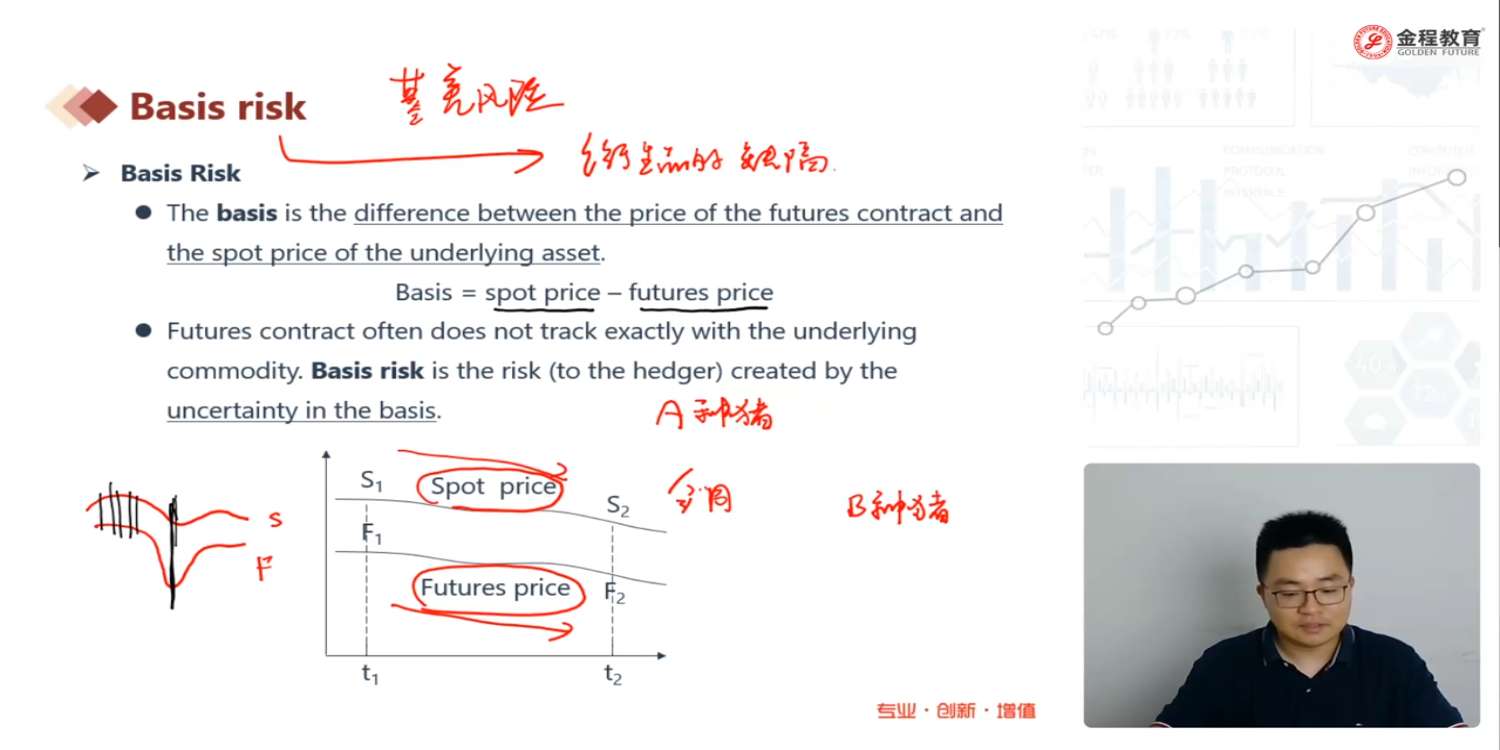 金程教育
GOLDEN FUTURE
Basis risk
基差风险
Basis Risk
衍生品的
The basis is the difference between the price of the futures contract and
the spot price of the underlying asset.
Basis = spot price – futures price
Futures contract often does not track exactly with the underlying
commodity. Basis risk is the risk (to the hedger) created by the
uncertainty in the basis.
A种猪
S₁
Spot price
S₂
B种猪
S
F
F₁
Futures price
F₂
t₁
t₂
专业·创新·增值